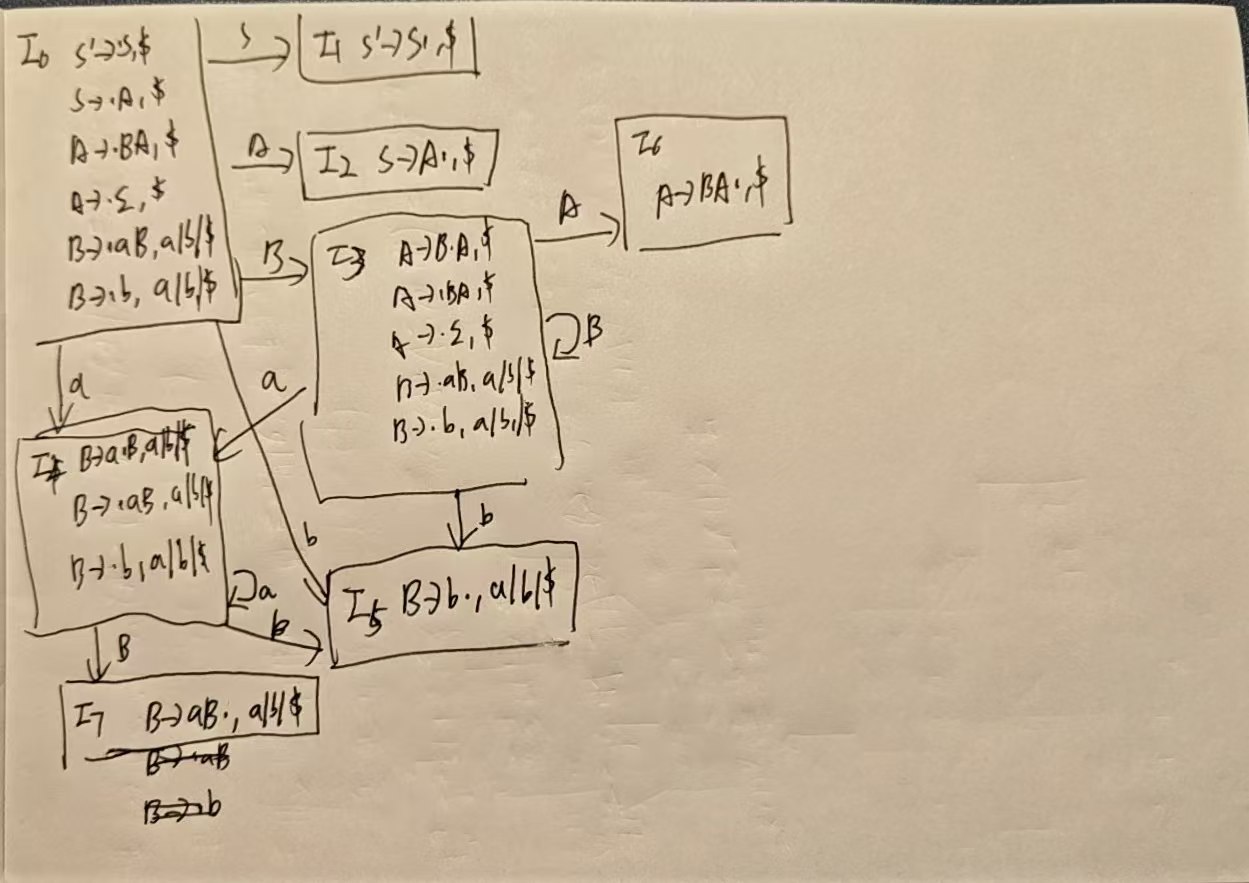 I0 S'→·S,$
S→·A,$
A→·BA,$
A→·Σ,$
B→·aB,a|b|$
B→·b,a|b|$
S
I1 S'→S·,$
A
I2 S→A·,$
B
I3 A→B·A,$
A→·BA,$
A→·Σ,$
B→·aB,a|b|$
B→·b,a|b|$
A
I6
A→BA·,$
B
a
a
b
b
I4 B→a·B,a|b|$
B→·aB,a|b|$
B→·b,a|b|$
a
b
I5 B→b·,a|b|$
B
I7 B→aB·,a|b|$
B→·aB
B→·b